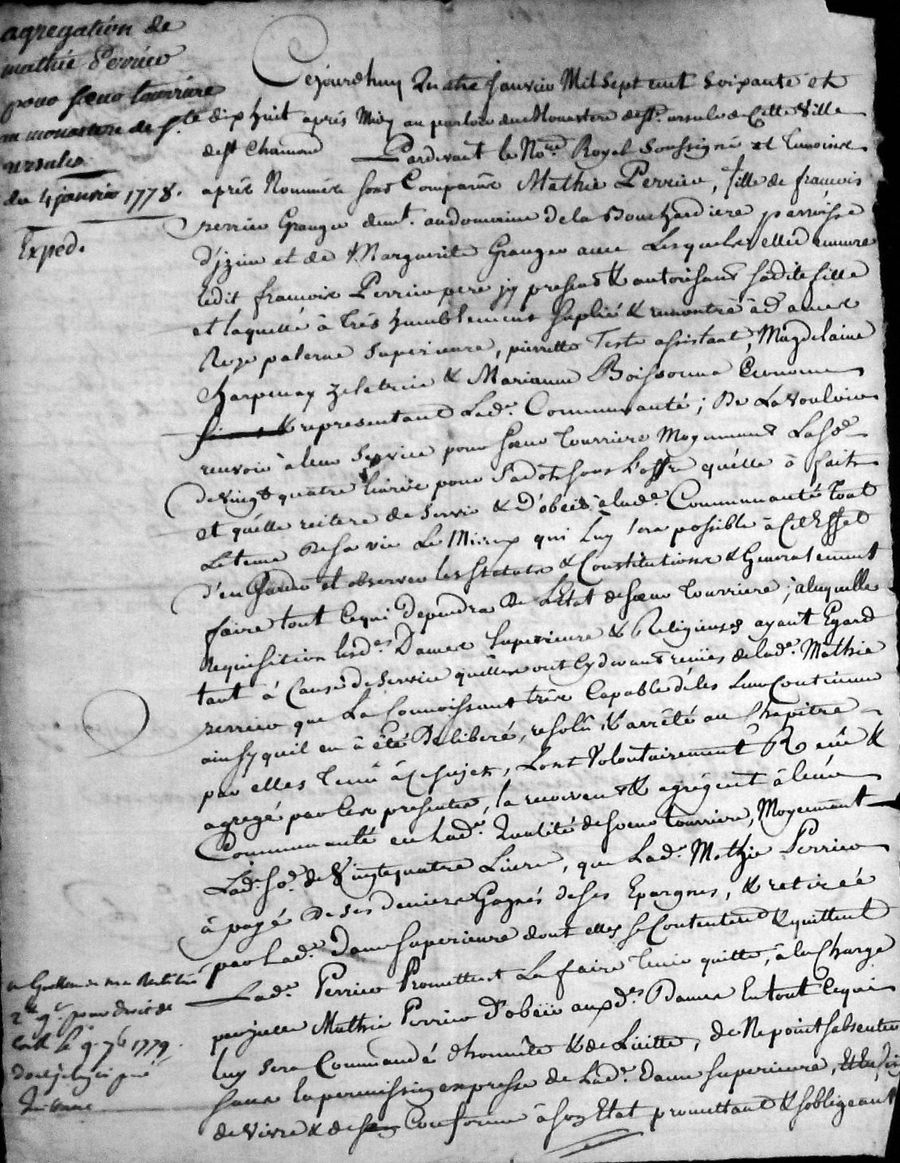 agregation de
mathie Perrier
pour soeur tourriere
au monastere de Ste
ursule
du 4 janvier 1778.
Exped.
Cejourdhuy Quatre janvier Mil sept cent soixante et
dixhuit après Midy au parloir du Monastere de Ste. ursule de Cette Ville
de St Chamond Pardevant le Nore. Royal Soussigné et temoins
après Nommés sont Comparus Mathie Perrier, fille de francois
perrier Granger demt. au domaine de la Bouchardiere parroisse
d'izieu et de Marguerite Granger avec Lesquels elle demeure
ledit francois Perrier pere jcy present & autorisant sadite fille
et laquelle à trés humblement suplié & remontré à dames
Reze palerne superieure, pierrette Teste assistante, Magdelaine
Harpenay zelatrice & Marianne Boissonna Econome
& representant Lade. Communauté; De La Vouloir
recevoir à leur service pour soeur Tourriere Moyennant La so.e
de vingt quatre Livres pour sa dot sous L'offre qu'elle à fait
et qu'elle reitere de servir & d'obeir à lade. Communauté Tout
Le tems de sa vie Le Mieux qui luy sera possible à Cet Effet
d'en Garder et observer les statuts & Constitutions & Generalement
faire tout Cequi dependra de L'Etat de soeur Tourriere; a laquelle
Requisition lesdes. Dames superieure & Religieuses ayant Egard
tant à Cause de service qu'elles ont cydevant reçües de lade. Mathie
perrier que La Connoissant très Capable de les Leur Continuer
ainsy quil en à été Deliberé, resolû & arrêté au Chapitre
par elles Tenû à Ce sujet, L'ont Volontairement Reçüe &
agregé par Ces presentes, la recoivent & agrégent à leur
Communauté en lade. Qualité de soeur tourriere, Moyennant
Lade. so.e de Vingtquatre Livres, que Lade. Mathie Perrier
à payé De ses deniers Gagnés de ses Epargnes, & retirée
par Lade. Dame superieure dont elles se Contentent & quittent
Lade. Perrier Promettent La faire Tenir quitte, à la Charge
par jcelle Mathie Perrier d'obeir auxdes. Dames En tout Cequi
luy sera Commandé d'honnête & de Licitte, de Ne point s'absenter
sans la permission expresse de Lade. Dame superieure,
de vivre & de Conforme à son Etat promettant & s'obligeant
pour droit de
le 9 7bre 1779